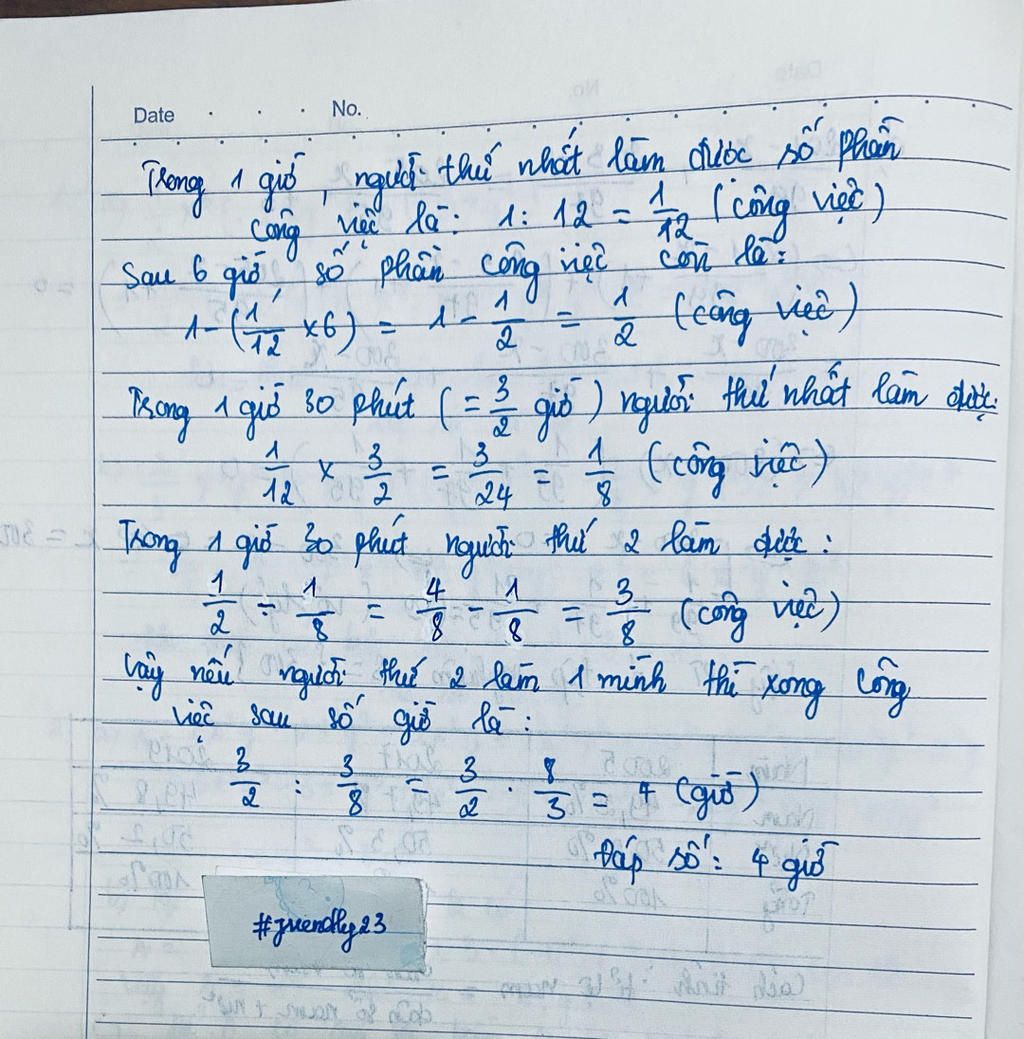 Date . . . No.
Trong 1 giờ, người thứ nhất làm được số phần
công việc là: 1 : 12 = 1/12 (công việc)
Sau 6 giờ, số phần công việc còn là:
1 - (1/12 × 6) = 1 - 1/2 = 1/2 (công việc)
Trong 1 giờ 30 phút (= 3/2 giờ) người thứ nhất làm được:
1/12 × 3/2 = 3/24 = 1/8 (công việc)
Trong 1 giờ 30 phút người thứ 2 làm được:
1/2 - 1/8 = 4/8 - 1/8 = 3/8 (công việc)
Vậy nếu người thứ 2 làm 1 mình thì xong công
việc sau số giờ là:
3/2 : 3/8 = 3/2 . 8/3 = 4 (giờ)
Đáp số: 4 giờ